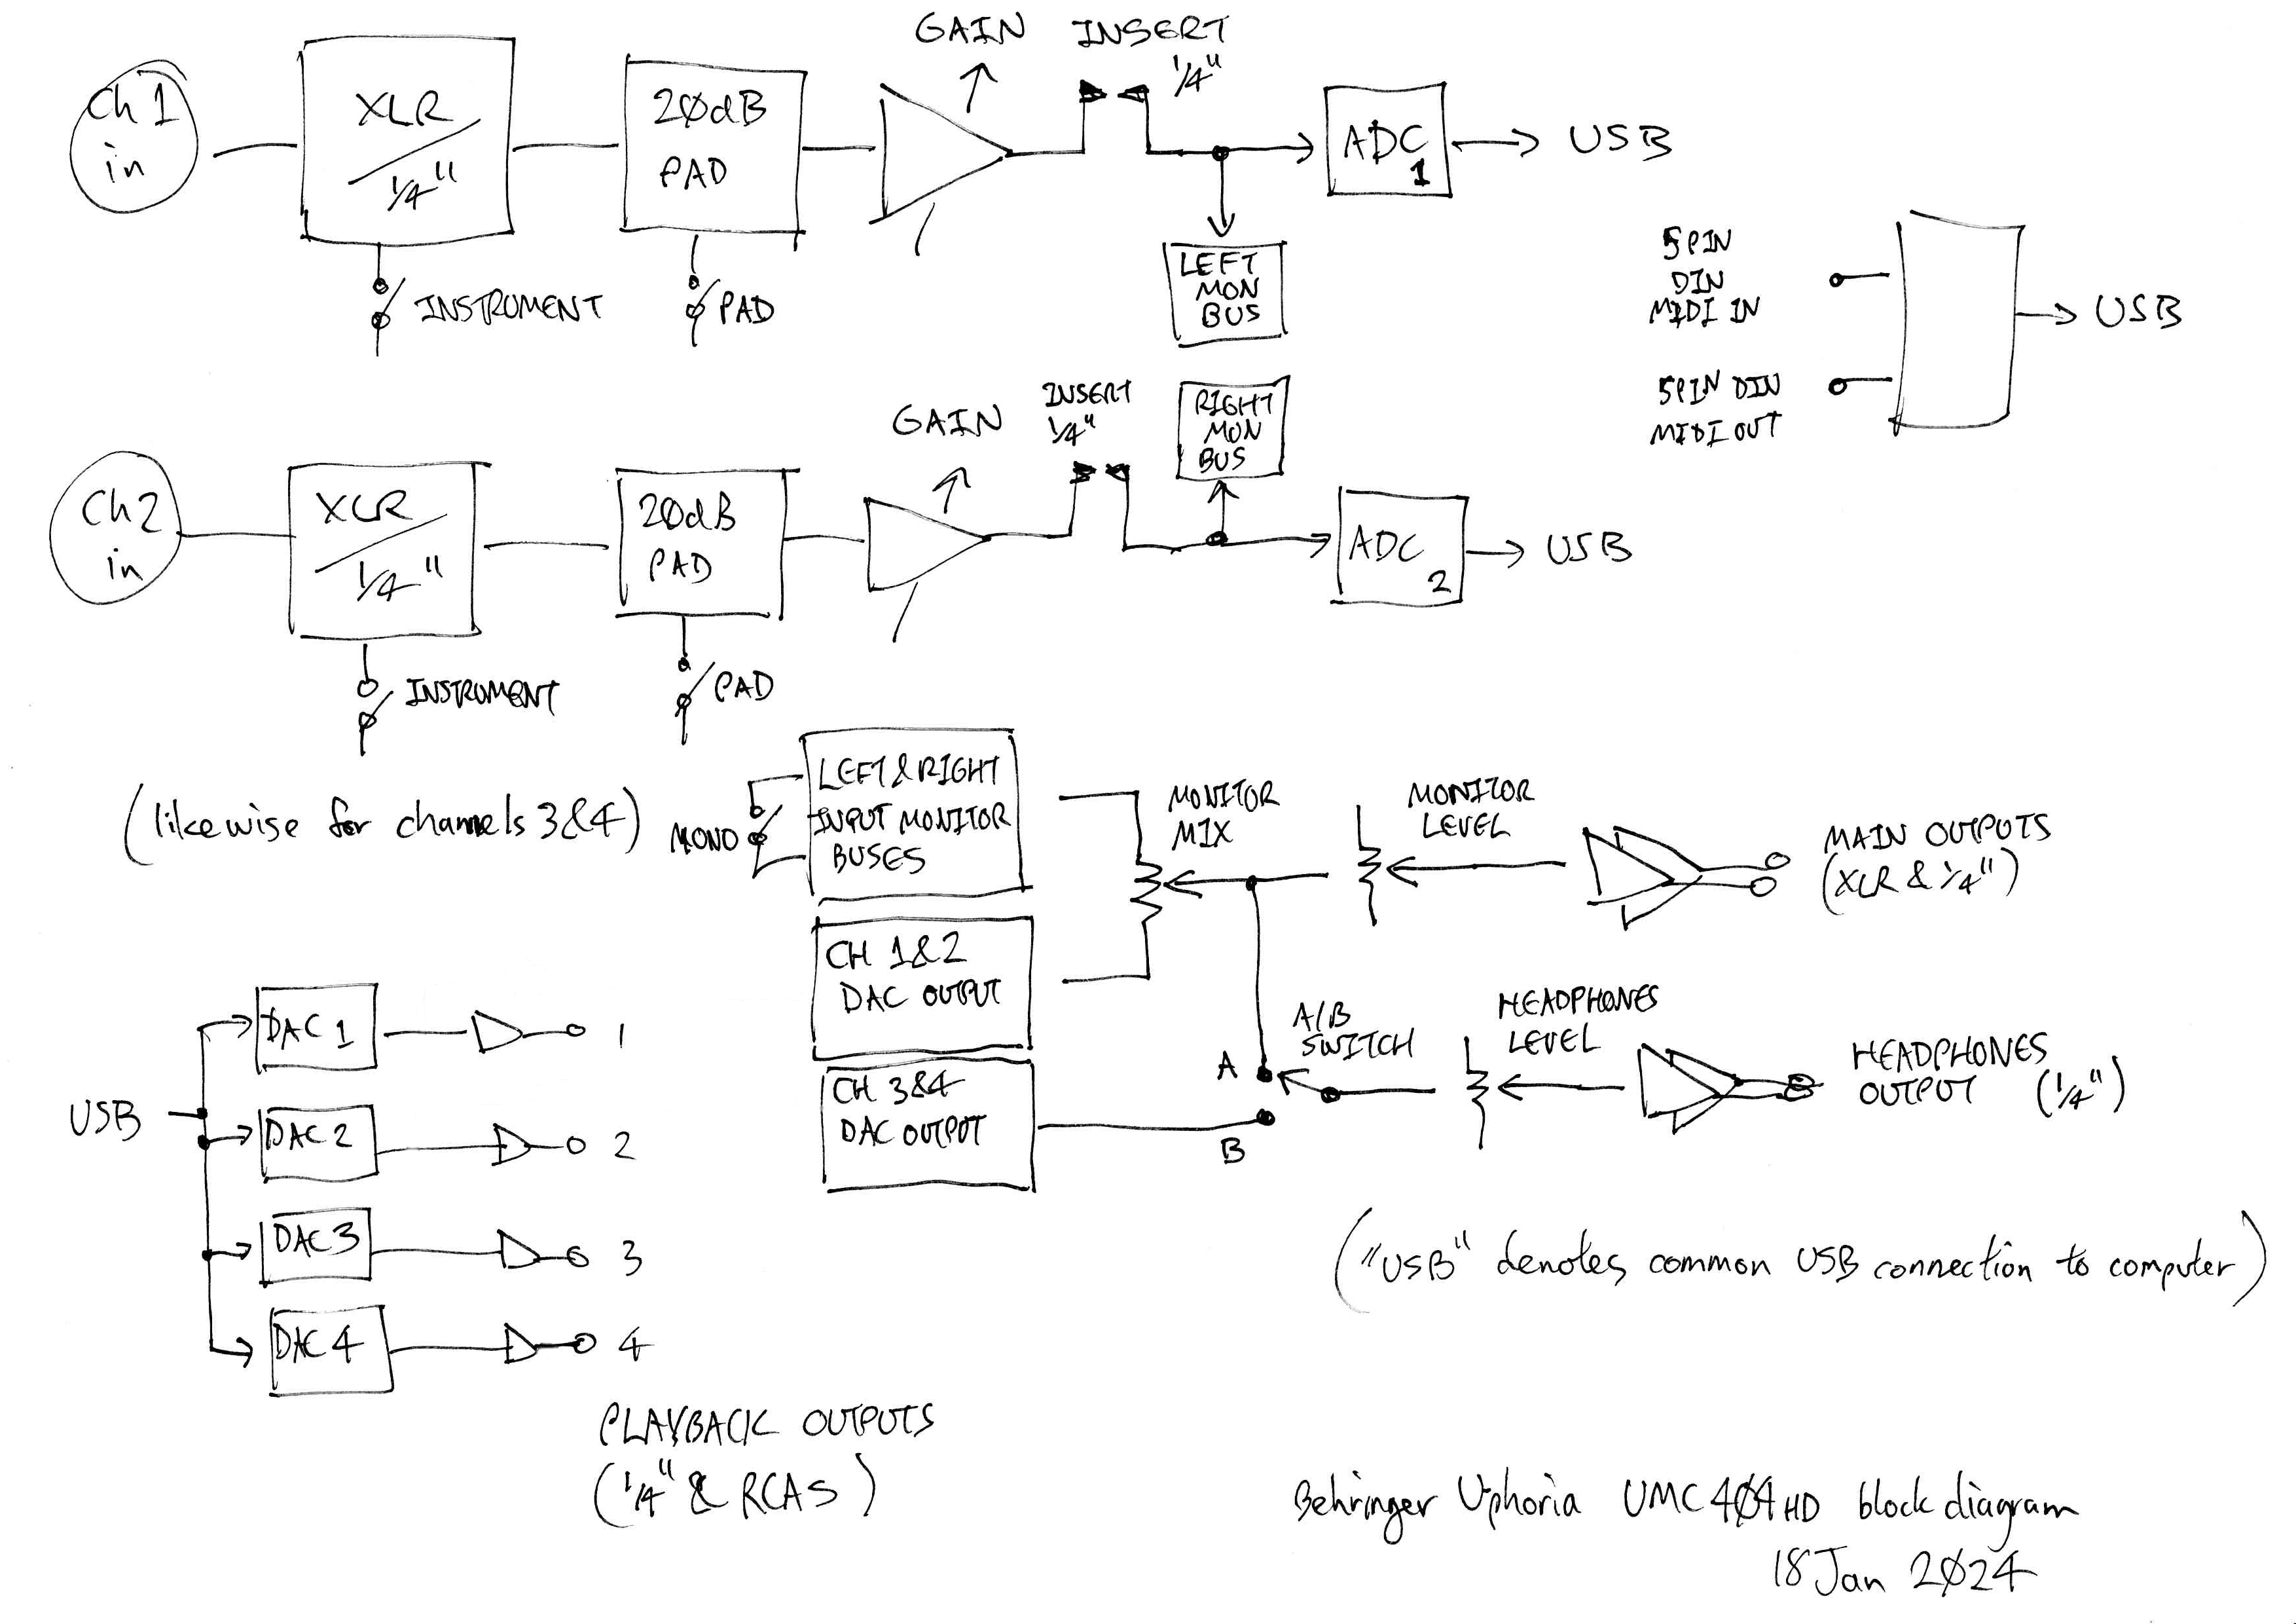 Ch 1
in
XLR
1/4"
INSTRUMENT
20dB
PAD
PAD
GAIN
INSERT
1/4"
LEFT
MON
BUS
ADC
1
USB
5PIN
DIN
MIDI IN
5PIN DIN
MIDI OUT
USB
Ch2
in
XLR
1/4"
INSTRUMENT
20dB
PAD
PAD
GAIN
INSERT
1/4"
RIGHT
MON
BUS
ADC
2
USB
(likewise for channels 3&4)
MONO
LEFT & RIGHT
INPUT MONITOR
BUSES
CH 1&2
DAC OUTPUT
CH 3&4
DAC OUTPUT
MONITOR
MIX
MONITOR
LEVEL
MAIN OUTPUTS
(XLR & 1/4")
A/B
SWITCH
A
B
HEADPHONES
LEVEL
HEADPHONES
OUTPUT (1/4")
USB
DAC 1
1
DAC 2
2
DAC 3
3
DAC 4
4
PLAYBACK OUTPUTS
(1/4" & RCAS)
("USB" denotes common USB connection to computer)
Behringer Uphoria UMC404HD block diagram
18 Jan 2024